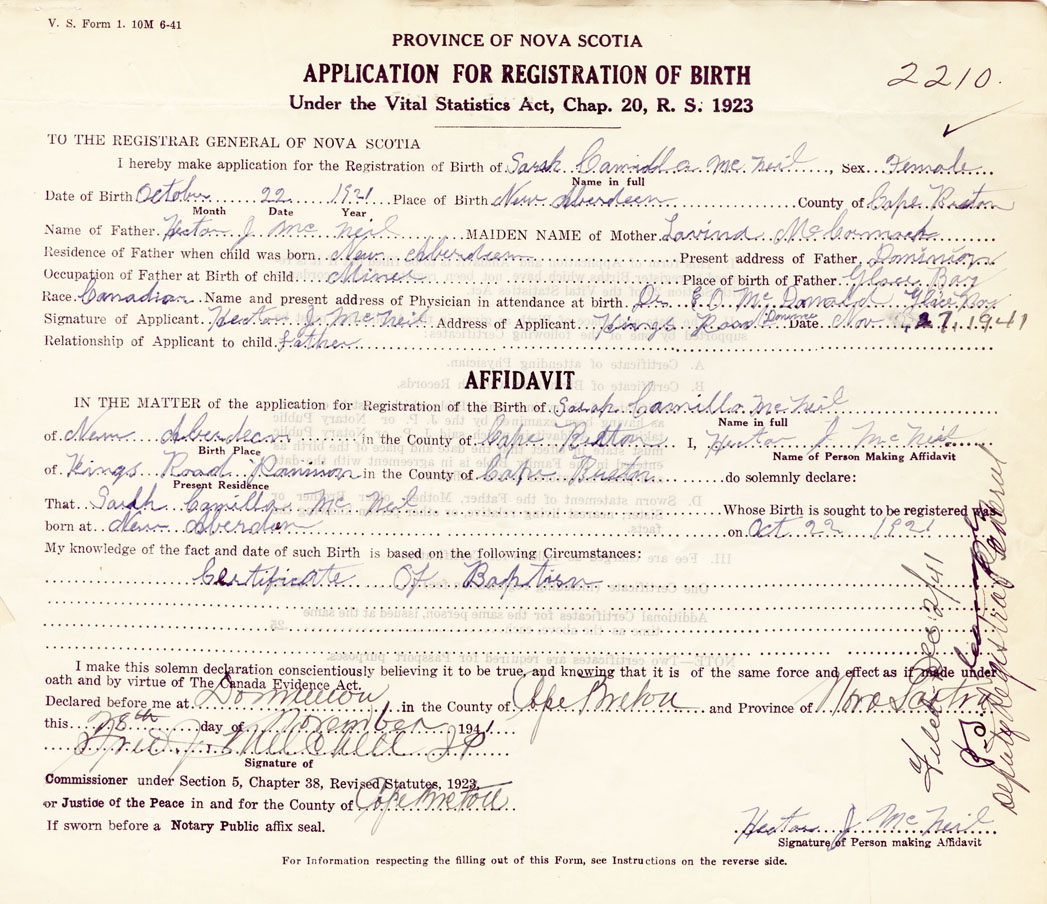 V. S. Form 1. 10M 6-41
PROVINCE OF NOVA SCOTIA
APPLICATION FOR REGISTRATION OF BIRTH
2210.
Under the Vital Statistics Act, Chap. 20, R. S. 1923
TO THE REGISTRAR GENERAL OF NOVA SCOTIA
I hereby make application for the Registration of Birth of Sarah Camilla McNeil, Sex Female
Name in full
Date of Birth October 22 1921 Place of Birth New Aberdeen County of Cape Breton
Month Date Year
Name of Father Hector J McNeil MAIDEN NAME of Mother Lavina McCormack
Residence of Father when child was born New Aberdeen Present address of Father Dominion
Occupation of Father at Birth of child Miner Place of birth of Father Glace Bay
Race Canadian Name and present address of Physician in attendance at birth. Dr. E.O. McDonald Glace Bay
Signature of Applicant Hector J. McNeil Address of Applicant Kings Road Date Nov 27, 1941
Relationship of Applicant to child Father
AFFIDAVIT
IN THE MATTER of the application for Registration of the Birth of Sarah Camilla McNeil
Name in full
of New Aberdeen in the County of Cape Breton I, Hector J McNeil
Birth Place Name of Person Making Affidavit
of Kings Road Dominion in the County of Cape Breton do solemnly declare:
Present Residence
That Sarah Camilla McNeil Whose Birth is sought to be registered was
born at New Aberdeen on Oct 22 1921
My knowledge of the fact and date of such Birth is based on the following Circumstances:
Certificate Of Baptism
I make this solemn declaration conscientiously believing it to be true, and knowing that it is of the same force and effect as if made under
oath and by virtue of The Canada Evidence Act.
Declared before me at Dominion in the County of Cape Breton and Province of Nova Scotia
this 28th day of November 1941
J P
Signature of
Commissioner under Section 5, Chapter 38, Revised Statutes, 1923,
or Justice of the Peace in and for the County of Cape Breton
If sworn before a Notary Public affix seal.
Hector J McNeil
Signature of Person making Affidavit
For Information respecting the filling out of this Form, see Instructions on the reverse side.
Filed Dec 2/41
Deputy Registrar General